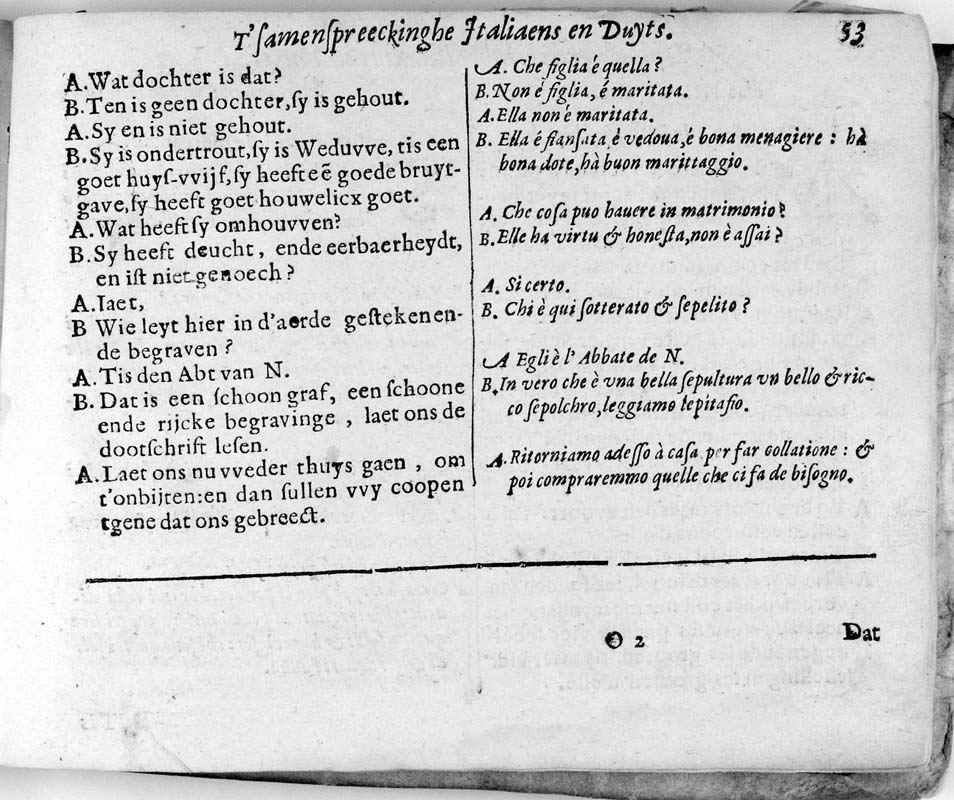 T'ſamenſpreeckinghe Italiaens en Duyts. 53
A. Wat dochter is dat?
B. Ten is geen dochter, ſy is gehout.
A. Sy en is niet gehout.
B. Sy is ondertrout, ſy is Weduvve, tis een
goet huyſ-vvijf, ſy heeft eē goede bruyt-
gave, ſy heeft goet houwelicx goet.
A. Wat heeft ſy omhouvven?
B. Sy heeft deucht, ende eerbaerheydt,
en iſt niet genoech?
A. Iaet,
B Wie leyt hier in d'aerde geſteken en-
de begraven?
A. Tis den Abt van N.
B. Dat is een ſchoon graf, een ſchoone
ende rijcke begravinge, laet ons de
dootſchrift leſen.
A. Laet ons nu vveder thuys gaen, om
t'onbijten: en dan ſullen vvy coopen
tgene dat ons gebreect.
A. Che figlia é quella?
B. Non é figlia, é maritata.
A. Ella non é maritata.
B. Ella é fianſata, è vedoua, é bona menagiere: hà
bona dote, hà buon marittaggio.
A. Che coſa puo hauere in matrimonio?
B. Elle ha virtu & honeſta, non è aſſai?
A. Si certo.
B. Chi è qui ſotterato & ſepelito?
A Egli è l'Abbate de N.
B. In vero che è vna bella ſepultura vn bello & ric-
co ſepolchro, leggiamo lepitafio.
A. Ritorniamo adeſſo à caſa per far collatione: &
poi compraremmo quelle che ci fa de biſogno.
O 2
Dat